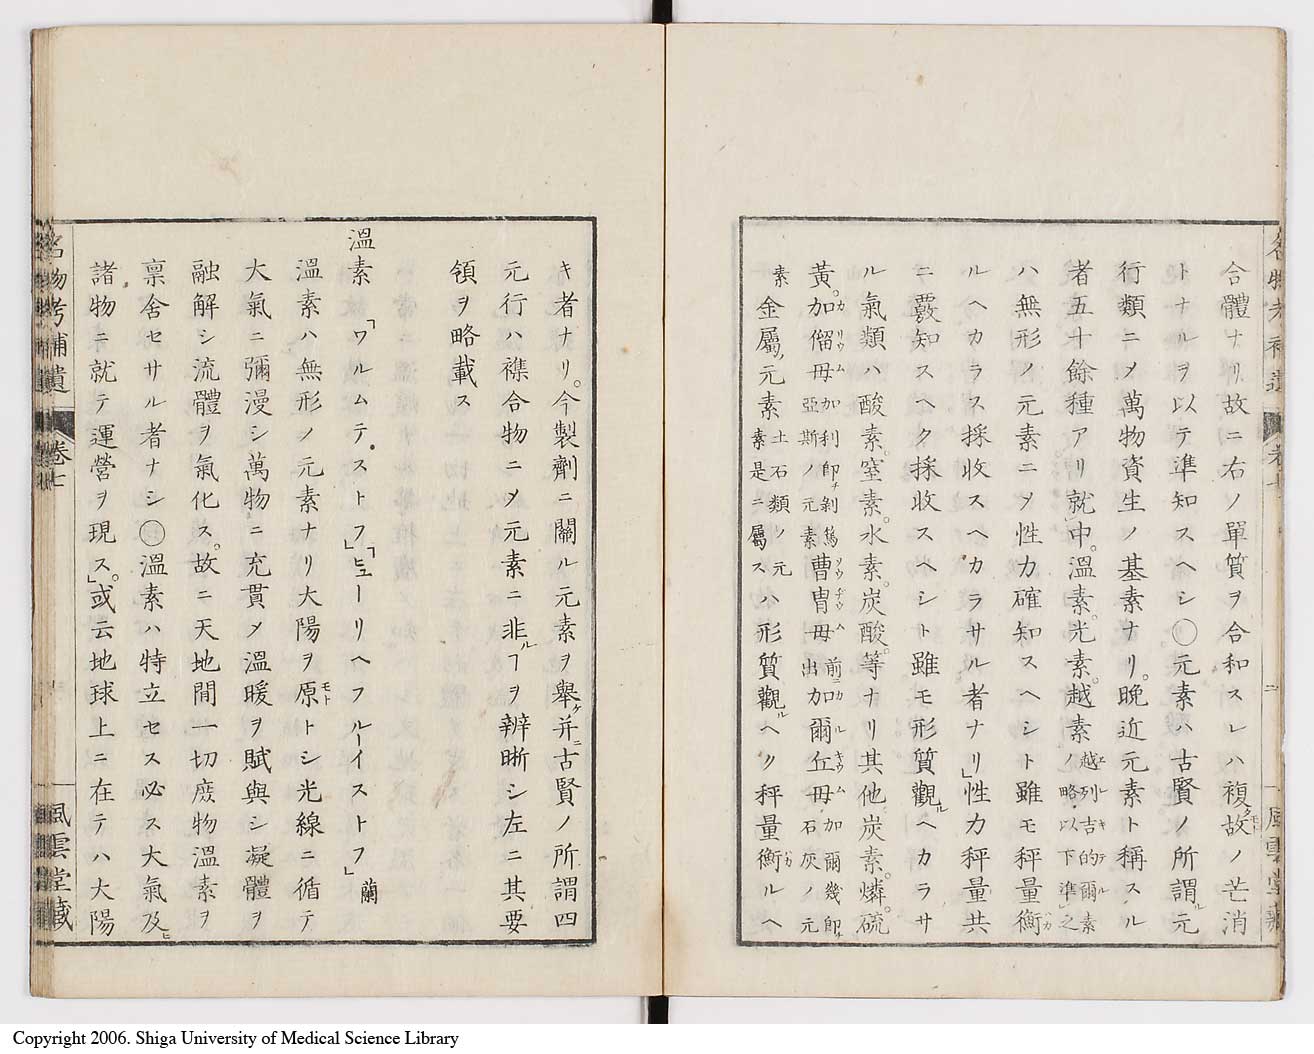 合體ナリ故ニ右ノ單質ヲ合和スレハ複故ノ芒消
トナルヲ以テ準知スヘシ○元素ハ古賢ノ所謂元
行類ニメ萬物資生ノ基素ナリ晩近元素ト稱スル
者五十餘種アリ就中溫素。光素。越素越列吉的爾素ノ略以下準之
ハ無形ノ元素ニヲ性力確知スヘシト雖モ秤量衡
ルヘカラス採收スヘカラサル者ナリ」性力秤量共
ニ覈知スヘク採收スヘシト雖モ形質觀ルヘカラサ
ル氣類ハ酸素。窒素。水素。炭酸。等ナリ其他炭素。燐。硫
黃。加僱母加利卽剝篤亞斯ノ元素曹冑母前ニ出加爾丘母加爾幾卽石灰ノ元
素金屬ノ元素土石類ノ元素是ニ屬スハ形質觀ルヘク秤量衡ルヘ
キ者ナリ。今製劑ニ關ル元素ヲ舉ケ并ニ古賢ノ所謂四
元行ハ襍合物ニメ元素ニ非ルヿヲ辨晰シ左ニ其要
領ヲ略載ス
溫素「ワルムテ。ストフ」「ヒューリヘフルーイストフ」蘭
溫素ハ無形ノ元素ナリ大陽ヲ原トシ光線ニ循テ
大氣ニ彌漫シ萬物ニ充貫メ溫暖ヲ賦與シ凝體ヲ
融解シ流體ヲ氣化ス。故ニ天地間一切庶物溫素ヲ
稟舍セサル者ナシ○溫素ハ特立セス必ス大氣及ヒ
諸物ニ就テ運營ヲ現ス」或云地球上ニ在テハ大陽
名物考補遺
卷七
二
風雲堂藏
名物考補遺
卷七
風雲堂藏
Copyright 2006. Shiga University of Medical Science Library